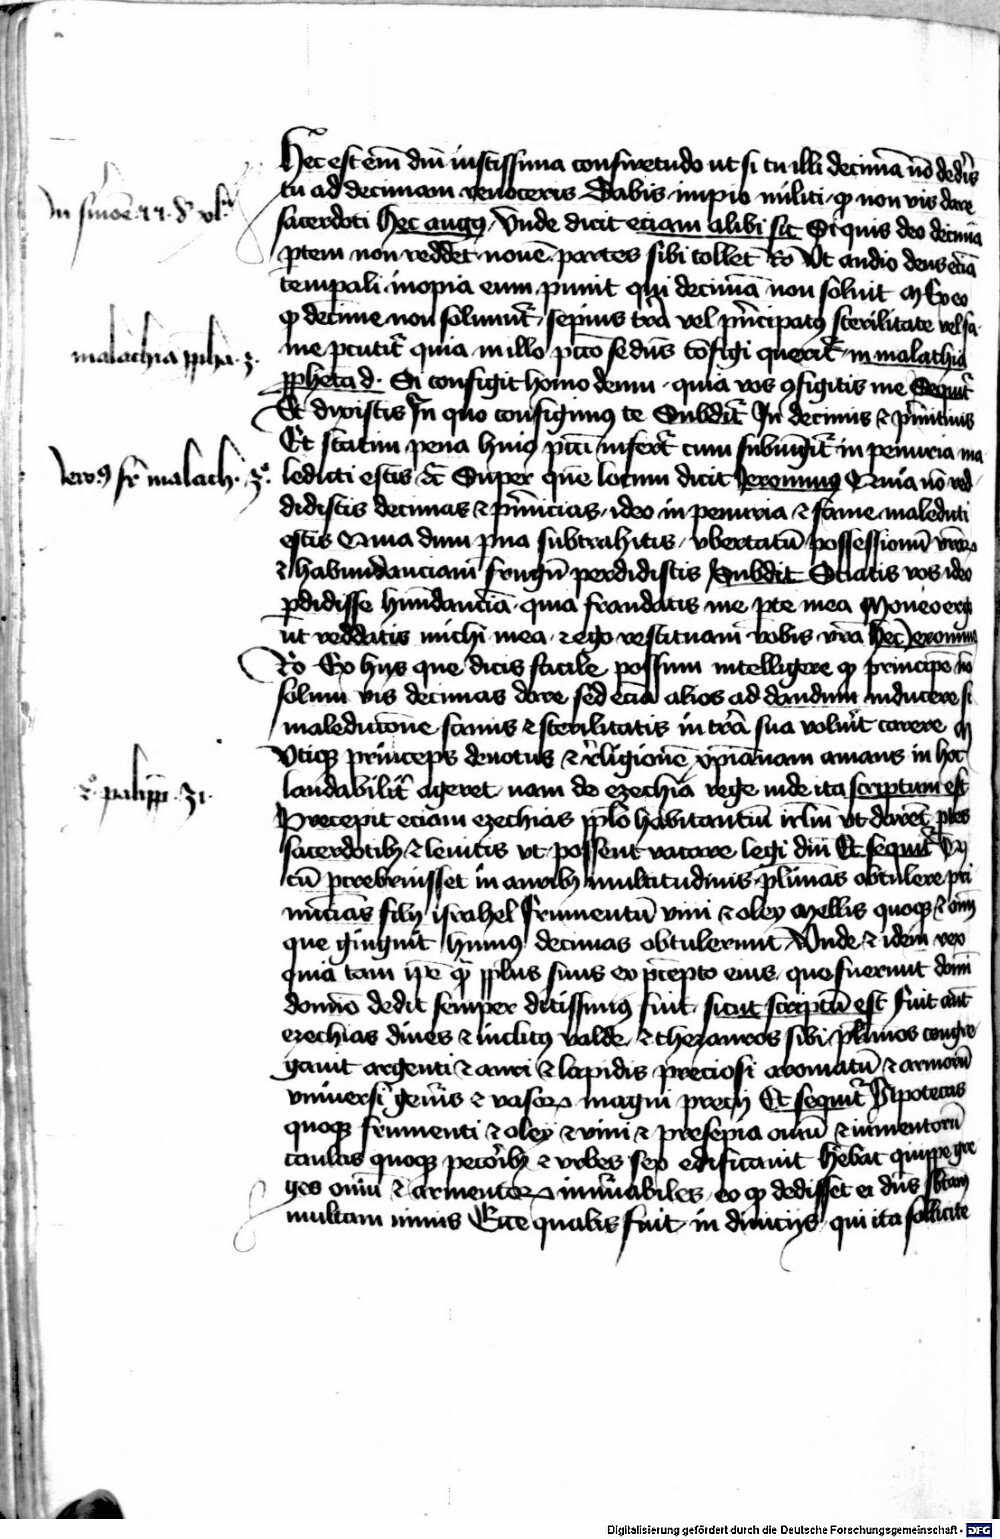 Hec est em̄ dn̄i iustissima consuetudo ut si tu illi decimā nō dedis̄
tu ad decimam reuoceris Dabis impio militi qͦ non vis dare
In sermōe
sacerdoti Hec augꝰ Vnde dicit eciam alibi sic Si quis deo decimā
ꝑtem non reddet nouē partes sibi tollet Ro Vt audio deus eciā
tempali inopia eum punit qui decimā non soluit M Ex eo
qͦ decime non soluunt̄ sepius trā vel pͥncipatꝰ sterilitate vel fa
malachia ꝓpha 3
me ꝑcutit̄ quia in illo pctō se dn̄s cōfigi querit̄ in malachia
ꝓpheta d Si configit homo deum quia vos ꝯfigitis me Sequit̄
Et dixistis In quo configimꝰ te Subdit̄ In decimis ⁊ pͥmitiuis
Et statim pena huiꝰ pcti infert̄ cum subiungit̄ in penuria ma
Ieroꝰ sr̄ malach 3ͦ
ledicti estis ⁊c̄ Super quē locum dicit Jeronimus Quia nō red
didistis decimas ⁊ pͥmicias ideo in penuria ⁊ fame maledicti
estis Quia dum pͣua subtrahitis vbertatū possessionū vrārꝫ
⁊ habundanciam frugū perdidistis Subdit Sciatis vos ideo
ꝑdidisse hundanciā quia fraudatis me pte mea Moneo ergo
ut reddatis michi mea ⁊ ego restituam vobis vrā Hec Jeronimꝰ
Ro Ex hijs que dicis facile possum intelligere qͦ principē nō
solum vis decimas dare sed eciā alios ad dandum inducere si
maledictione famis ⁊ sterilitatis in trā sua voluit carere M
Vtiqꝫ princeps deuotus ⁊ religionē xpianam amans in hoc
2ͦ palipp 31
laudabilit̄ ageret nam de ezechia rege iude ita scriptum est
Precepit eciam ezechias pplo habitantiū irlm̄ vt darēt ptes
sacerdotibꝫ ⁊ leuitis vt possent vacare legi dn̄i Et sequit̄ Qd
cū ꝑcrebruisset in auribꝫ multitudinis plimas obtulere pri
micias filij israhel Frumentū vini ⁊ oley mellis quoqꝫ ⁊ om̄
que gingnit humꝰ decimas obtulerunt Vnde ⁊ idem rex
quia tam ipe qͣ pplus suus ex pcepto eius que fuerunt domī
domīo dedit semper ditissimꝰ fuit sicut scriptū est Fuit aūt
ezechias diues ⁊ inclitꝰ valde ⁊ thezauros sibi plimos congre
gauit argenti ⁊ auri ⁊ lapidis preciosi aromatū ⁊ armorū
vniuersi gen̄is ⁊ vasorꝫ magni precij Et sequit̄ Apotecas
quoqꝫ frumenti ⁊ oley ⁊ vini ⁊ presepia om̄iū ⁊ iumentorū
caulas quoqꝫ pecoribꝫ ⁊ vrbes sex edificauit Hēbat quippe gre
ges ouiū ⁊ armentorꝫ innūabiles eo qͦ dedisset ei dn̄s sbtam
multam nimis Ecce qualis fuit in diuicijs qui ita sollicite
Digitalisierung gefördert durch die Deutsche Forschungsgemeinschaft - DFG